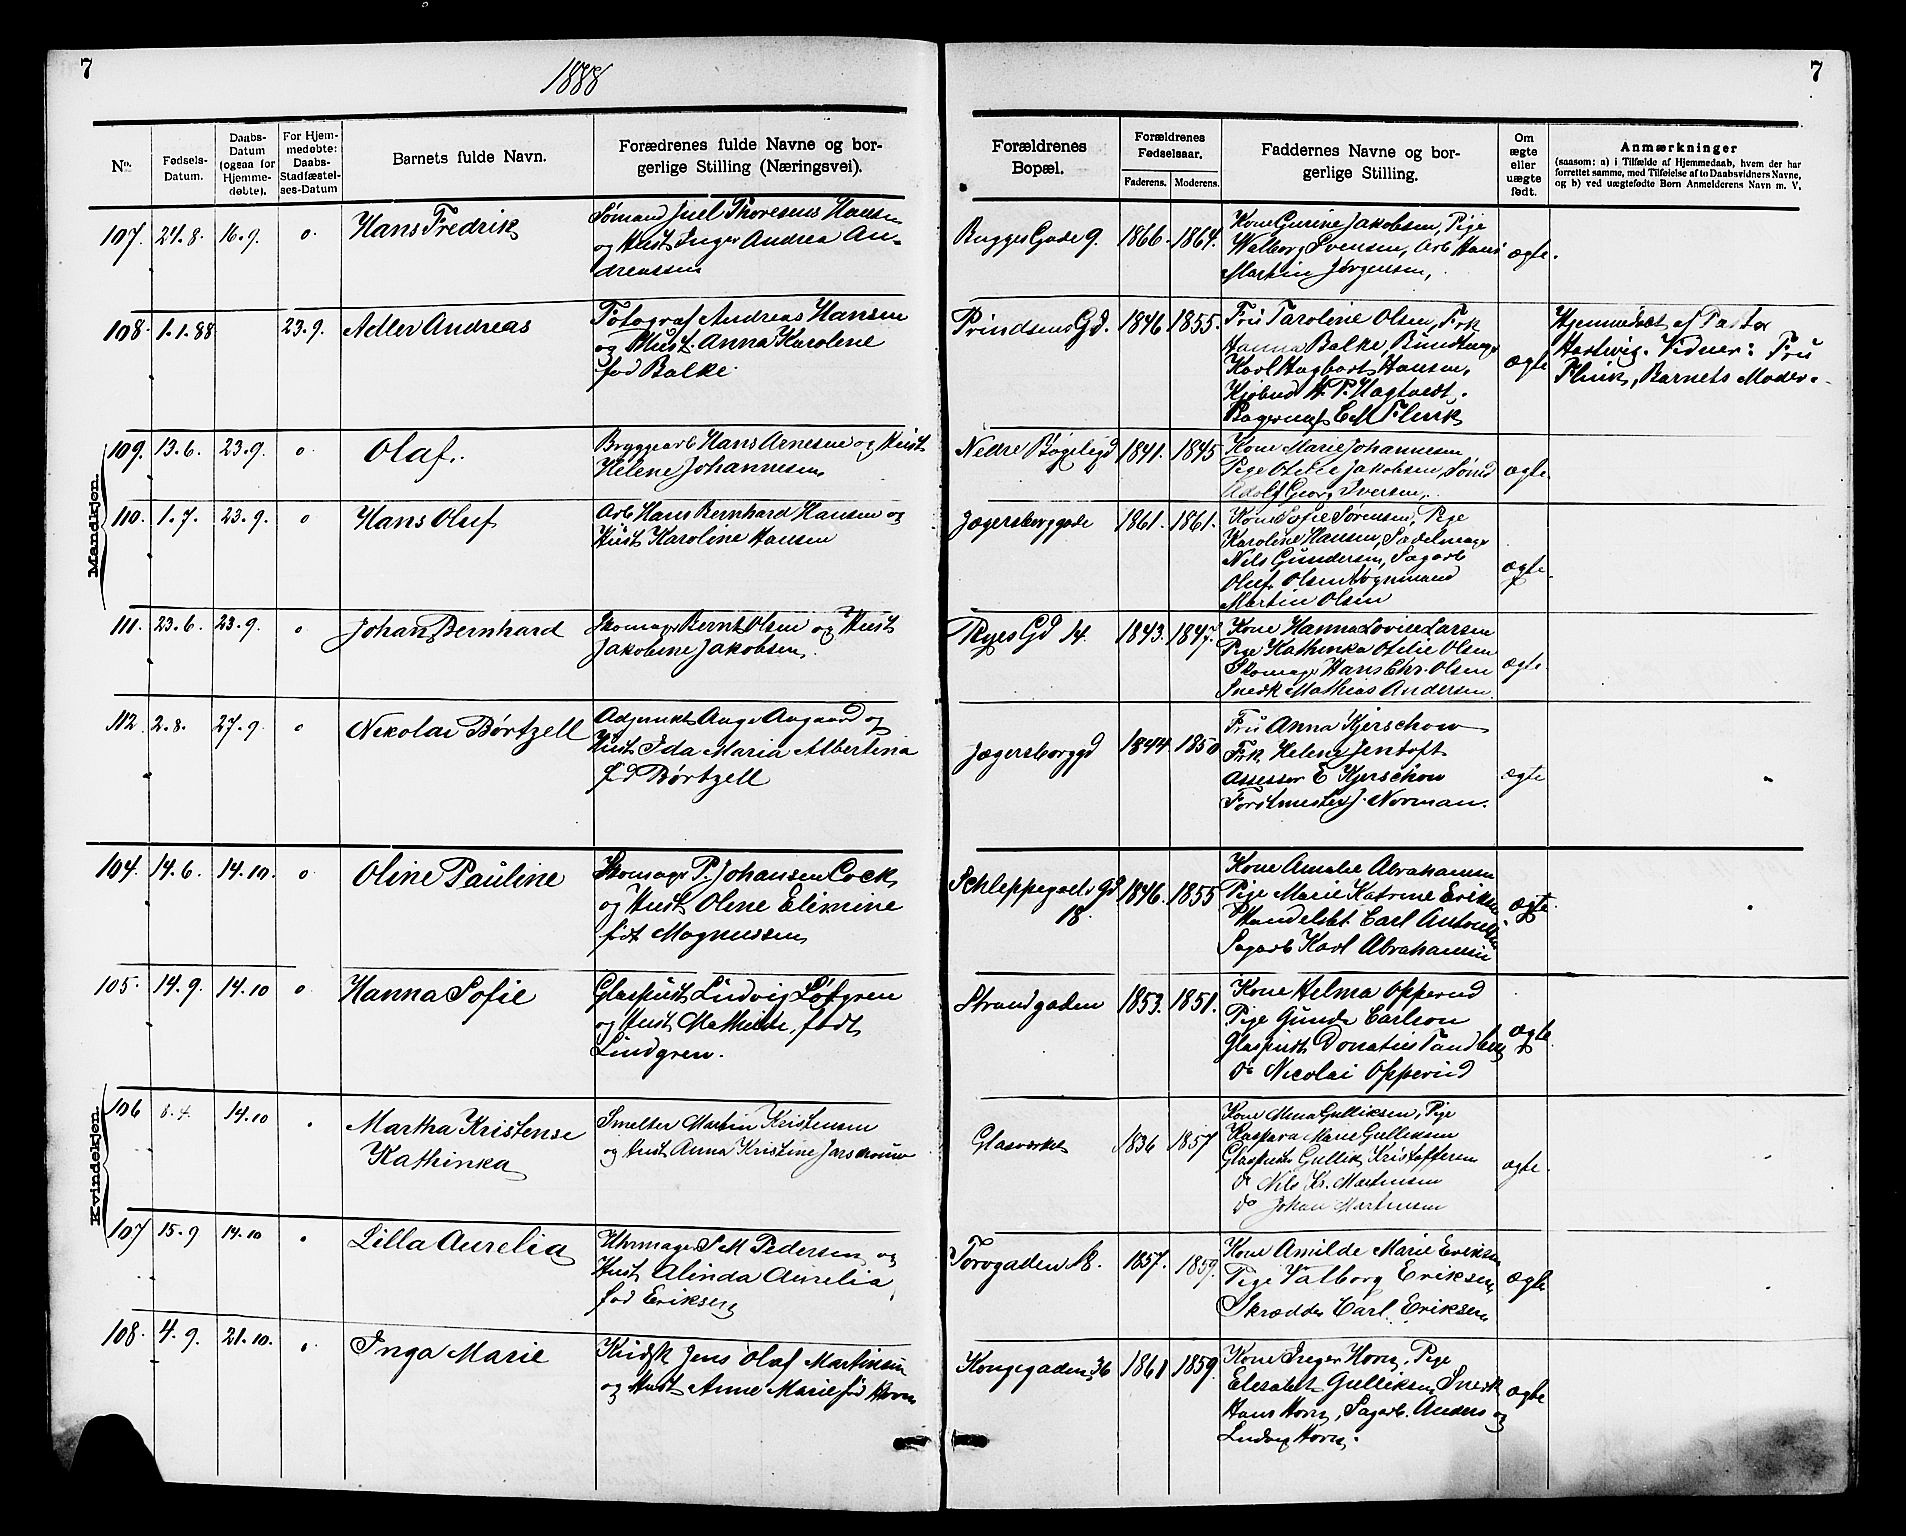 7
1888
7
No.
Fødsels-Datum.
Daabs-Datum (ogsaa for Hjemme-døbte).
For Hjem-medøbte: Daabs-Stadfæstel-ses-Datum
Barnets fulde Navn.
Forædrenes fulde Navne og bor-
gerlige Stilling (Næringsvei).
Forældrenes
Bopæl.
Forældrenes
Fødselsaar.
Faderens. Moderens.
Faddernes Navne og bor-
gerlige Stilling.
Om
ægte
eller
uægte
født.
Anmærkninger
(saasom: a) i Tilfælde af Hjemmedaab, hvem der har
forrettet samme, med Tilføielse af to Daabsvidners Navne,
og b) ved uægtefødte Børn Anmelderens Navn m. V.
Mandkjøn.
107. 21.8. 16.9. o. Hans Fredrik
Sømand Juel Thoresens Hansen
og Hust Inger Andrea An-
dreassen
Bugges Gade 9. 1866. 1864.
Kone Gurine Jakobsen, Pige
Walborg Svensen, Arb Hans
Martin Jørgensen,
ægte.
108. 1.1.88 23.9. Adler Andreas
Fotograf Andreas Hansen
og Hust. Anna Karolene
fød Balke.
Prindsens Gd. 1846 1855.
Fru Karoline Olsen, Frk
Hanna Balke, Bundtmagr
Karl Hagbart Hansen,
Kjøbmd H. P. Hagtvedt,
Bagermst C M Flink
ægte
Hjemmedøbt af Pastor
Hartvig. Vidner: Fru
Flink, Barnets Moder.
109. 13.6. 23.9. o Olaf.
Bryggearb Hans Arnesen og Hust
Helene Johannesen
Nedre Bøgeligd 1841. 1845
Kone Marie Johannesen
Pige Otilie Jakobsen, Sømd
Adolf Georg Iversen,
ægte
110. 1.7. 23.9. o Hans Oluf
Arb Hans Bernhard Hansen og
Hust Karoline Hansen
Jægersborggade 1861. 1861.
Kone Sofie Sørensen, Pige
Karoline Hansen, Sadelmagr
Nils Gundersen, Sagarb
Oluf Olsen Vognmand
Martin Olsen
ægte.
111. 23.6. 23.9. o Johan Bernhard
Skomagr Bernt Olsen og Hust
Jakobine Jakobsen.
Ryes Gd 14. 1843. 1847.
Kone Hanna Lovise Larsen
Pige Kathinka Otilie Olsen
Skomagr Hans Chr. Olsen
Snedk Mathias Andersen
ægte
112 2.8. 27.9. o Nikolai Børtzell
Adjunkt Aage Aagaard og
Hust Ida Maria Albertina
f.d Børtzell
Jægersborggd 1844 1850
Fru Anna Kjerschow
Frk Helene Jentoft
Assessor E Kjerschow
Forstmester J. Norman.
ægte
Kvindekjøn.
104. 14.6. 14.10. o Oline Pauline
Skomagr P. Johansen Cock
og Hust Olene Elimine
født Magnussen
Schleppegaels Gd 18. 1846. 1855
Kone Amalie Abrahamsen
Pige Marie Katrine Eriksen
Handelsbet. Carl Antonsen
Sagarb Karl Abrahamsen
ægte.
105. 14.9. 14.10 o Hanna Sofie
Glaspust Ludvig Løfgren
og Hust Mathilde, født
Lindgren.
Strandgaden 1853. 1851.
Kone Helma Opperud
Pige Gunda Carlson
Glaspust Donatius Tandberg
do Nicolai Opperud
ægte.
106 14.10 Martha Kristense
Kathinka
Smelter Martin Kristensen
og Hust Anna Kristine
Glasværket 1836 1857
Kone Gulliksen, Pige
Kaspara Marie Gulliksen
Glaspuster Gullik Kristoffersen
do Nils Kr. Martinsen
do Johan Martinsen
ægte.
107 15.9 14.10 Lilla Aurelia
Uhrmager S M Pedersen og
Hust Alinda Aurelia
fød Eriksen
Torvgaden 18. 1857. 1859.
Kone Amilde Marie Eriksen
Pige Valborg Eriksen
Skrædder Carl Eriksen
ægte
108. 4.9. 21.10. Inga Marie
Kudsk Jens Olaf Martinsen
og Hust Anne Marie fød Horn
Kongegaden 36 1861 1859.
Kone Inger Horn, Pige
Elesabet Gulliksen, Snedk
Hans Horn, Sagarb. Anders og
Ludvig Horn.
ægte